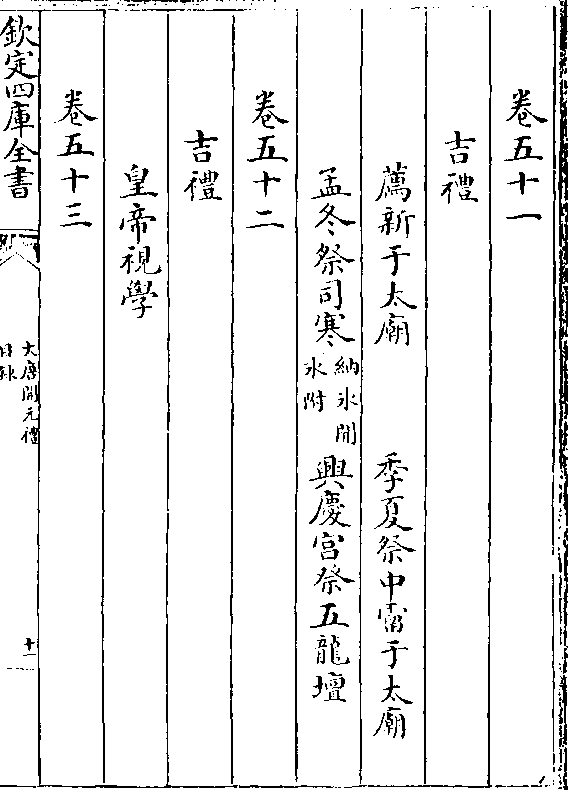 卷五十一
吉禮
薦新于太廟　季夏祭中霤于太廟
孟冬祭司寒納氷開氷附　興慶宮祭五龍壇
卷五十二
吉禮
皇帝視學
卷五十三
欽定四庫全書
大唐開元禮
目錄
十一